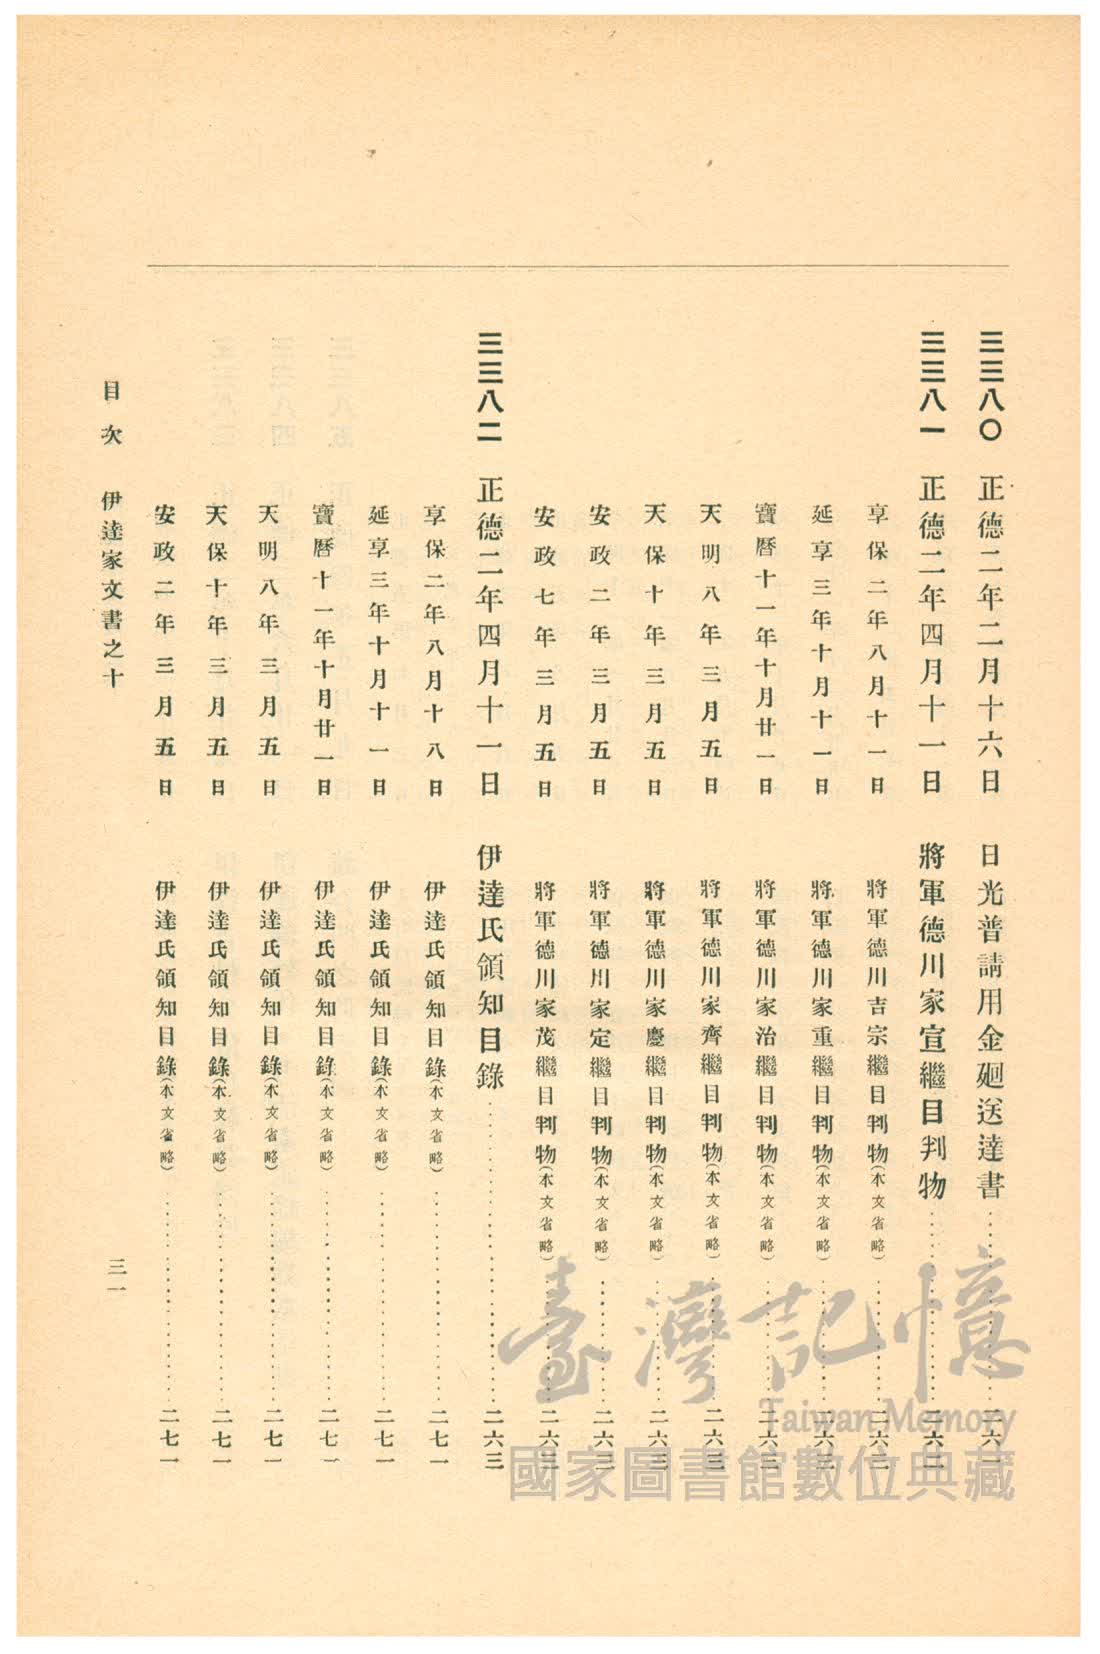 三三八〇 正德二年二月十六日 日光普請用金廻送達書……二六一
三三八一 正德二年四月十一日 將軍德川家宣繼目判物……二六二
享保二年八月十一日 將軍德川吉宗繼目判物(本文省略)……二六三
延享三年十月十一日 將軍德川家重繼目判物(本文省略)……二六三
寶曆十一年十月廿一日 將軍德川家治繼目判物(本文省略)……二六三
天明八年三月五日 將軍德川家齊繼目判物(本文省略)……二六三
天保十年三月五日 將軍德川家慶繼目判物(本文省略)……二六三
安政二年三月五日 將軍德川家定繼目判物(本文省略)……二六三
安政七年三月五日 將軍德川家茂繼目判物(本文省略)……二六三
三三八二 正德二年四月十一日 伊達氏領知目錄……二六三
享保二年八月十八日 伊達氏領知目錄(本文省略)……二七一
延享三年十月十一日 伊達氏領知目錄(本文省略)……二七一
寶曆十一年十月廿一日 伊達氏領知目錄(本文省略)……二七一
天明八年三月五日 伊達氏領知目錄(本文省略)……二七一
天保十年三月五日 伊達氏領知目錄(本文省略)……二七一
安政二年三月五日 伊達氏領知目錄(本文省略)……二七一
目次 伊達家文書之十 三一
臺灣記憶
Taiwan Memory
國家圖書館數位典藏